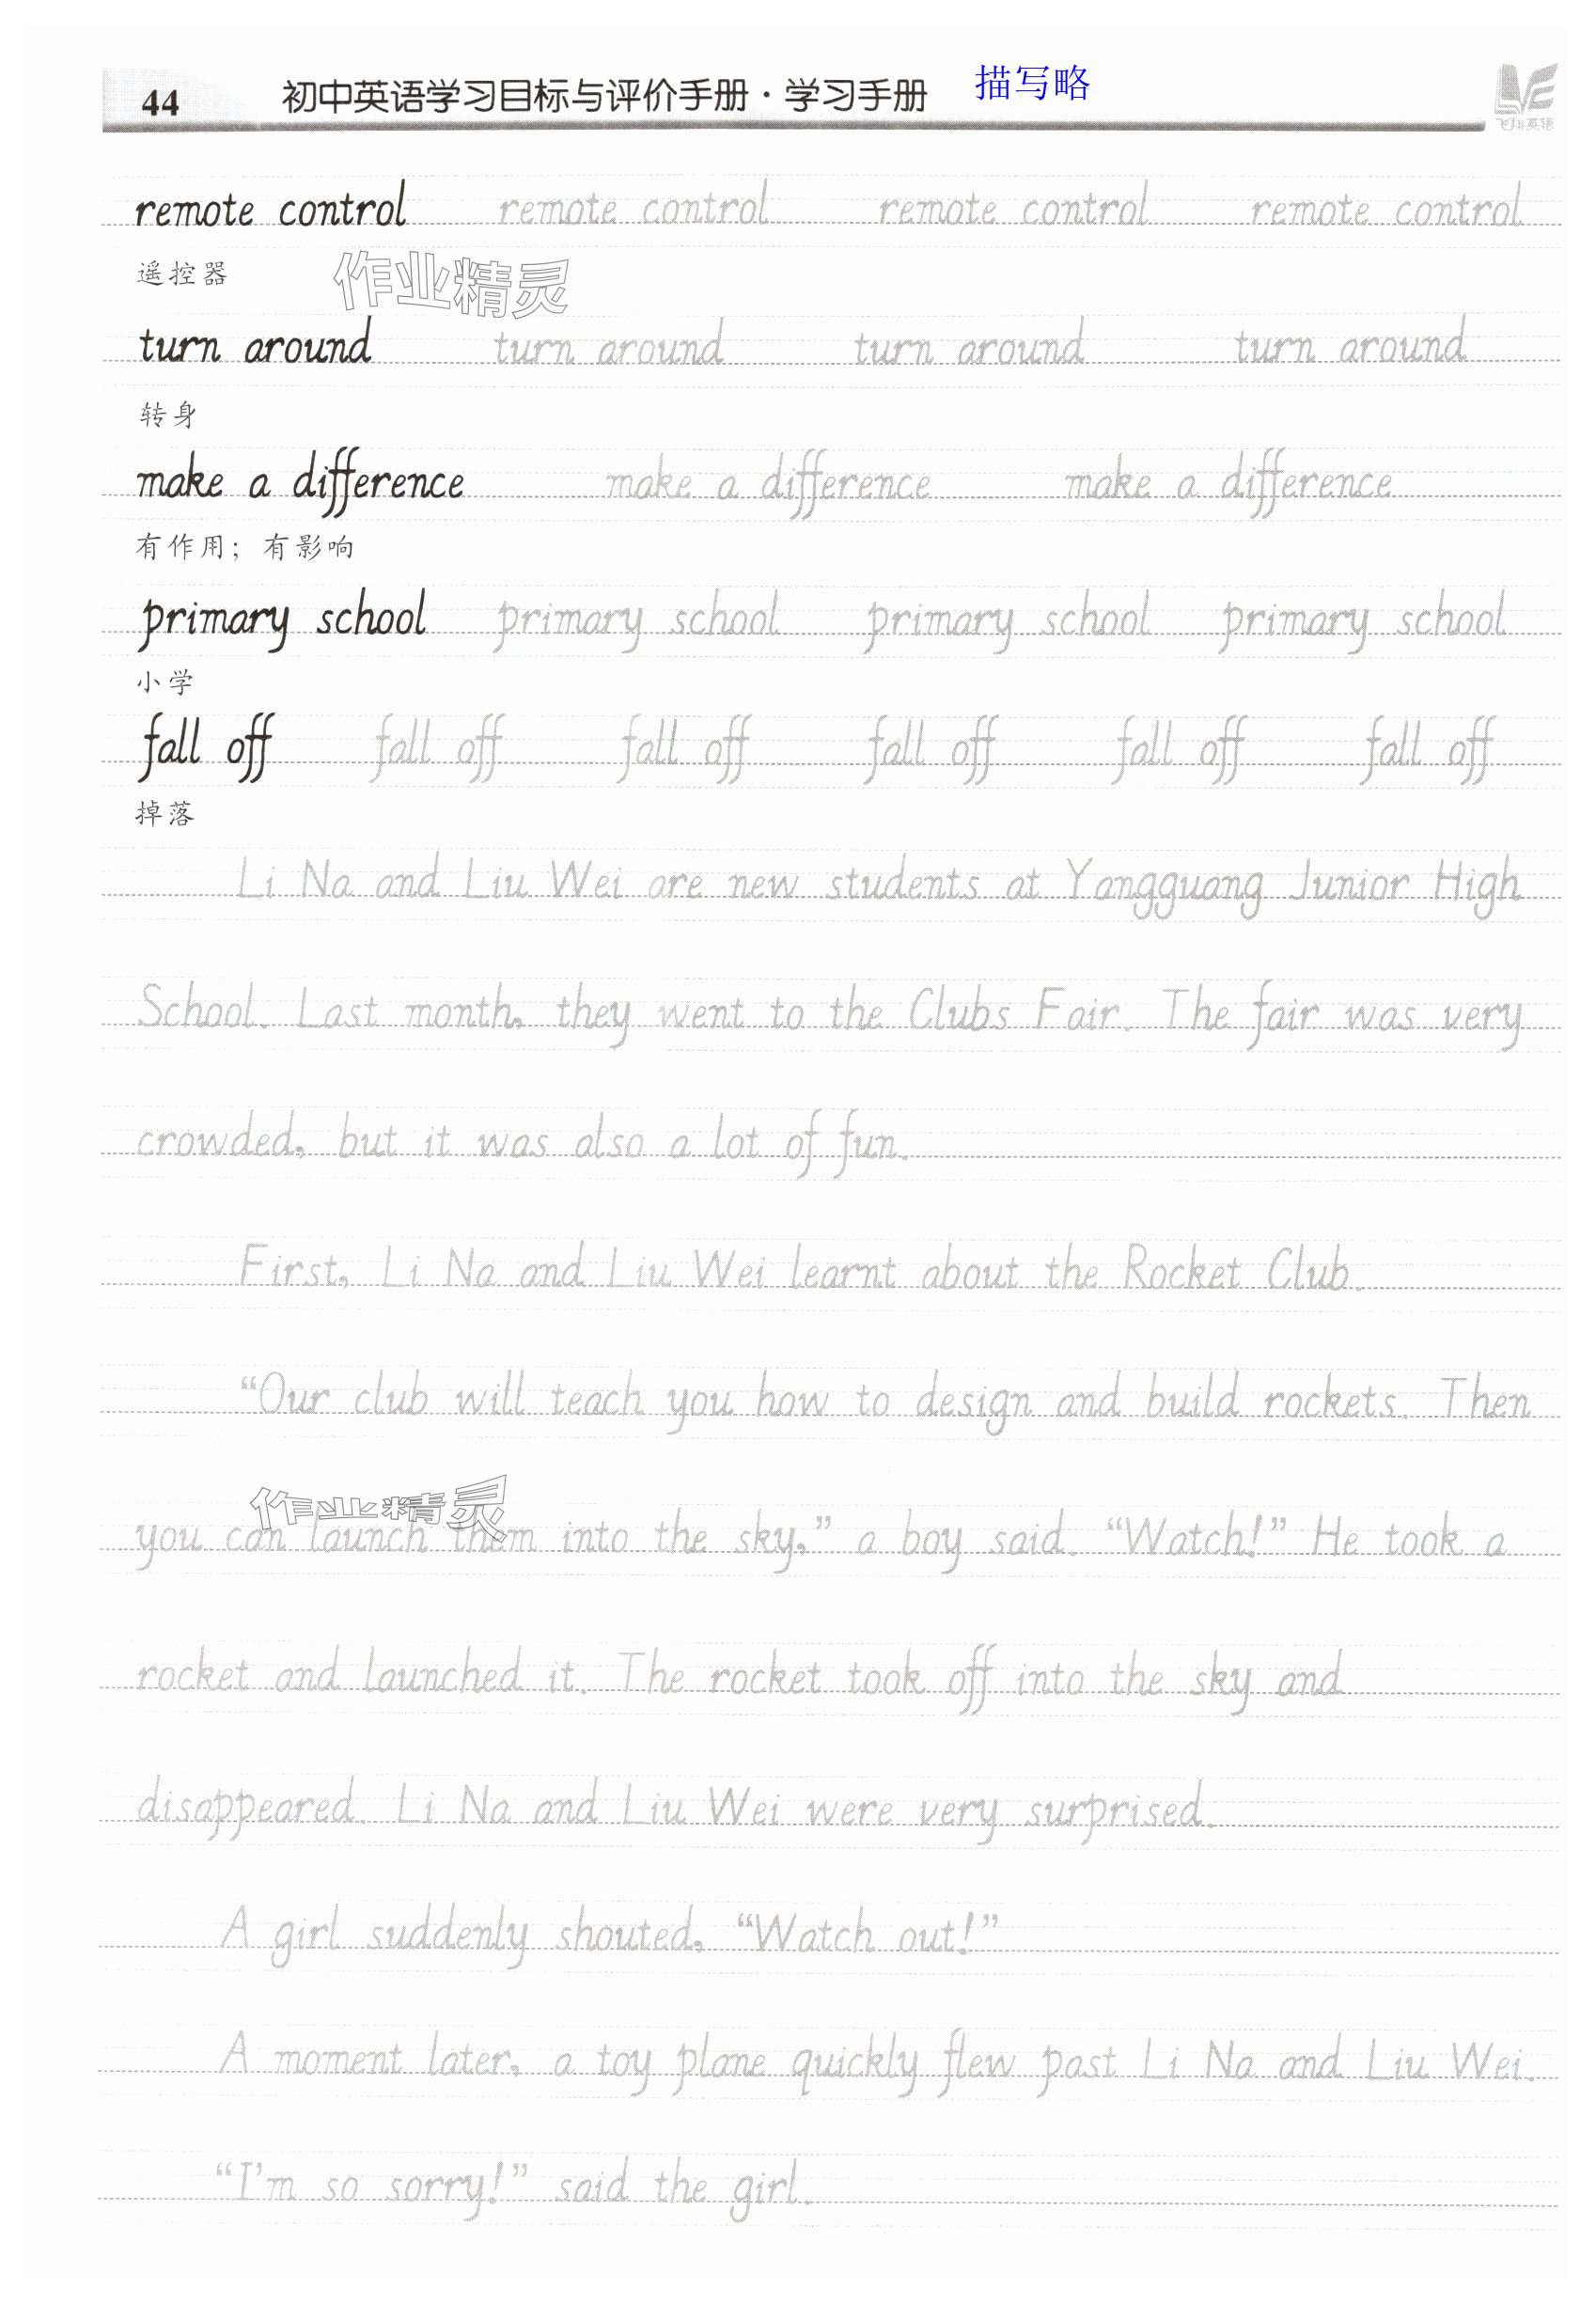 44 初中英语学习目标与评价手册·学习手册 描写略
remote control remote control remote control remote control
遥控器
作业精灵
turn around turn around turn around turn around
转身
make a difference make a difference make a difference
有作用；有影响
primary school primary school primary school primary school
小学
fall off fall off fall off fall off fall off fall off
掉落
Li Na and Liu Wei are new students at Yangguang Junior High
School. Last month, they went to the Clubs Fair. The fair was very
crowded, but it was also a lot of fun.
First, Li Na and Liu Wei learnt about the Rocket Club.
“Our club will teach you how to design and build rockets. Then
作业精灵
you can launch them into the sky,” a boy said. “Watch!” He took a
rocket and launched it. The rocket took off into the sky and
disappeared. Li Na and Liu Wei were very surprised.
A girl suddenly shouted, “Watch out!”
A moment later, a toy plane quickly flew past Li Na and Liu Wei.
“I’m so sorry!” said the girl.